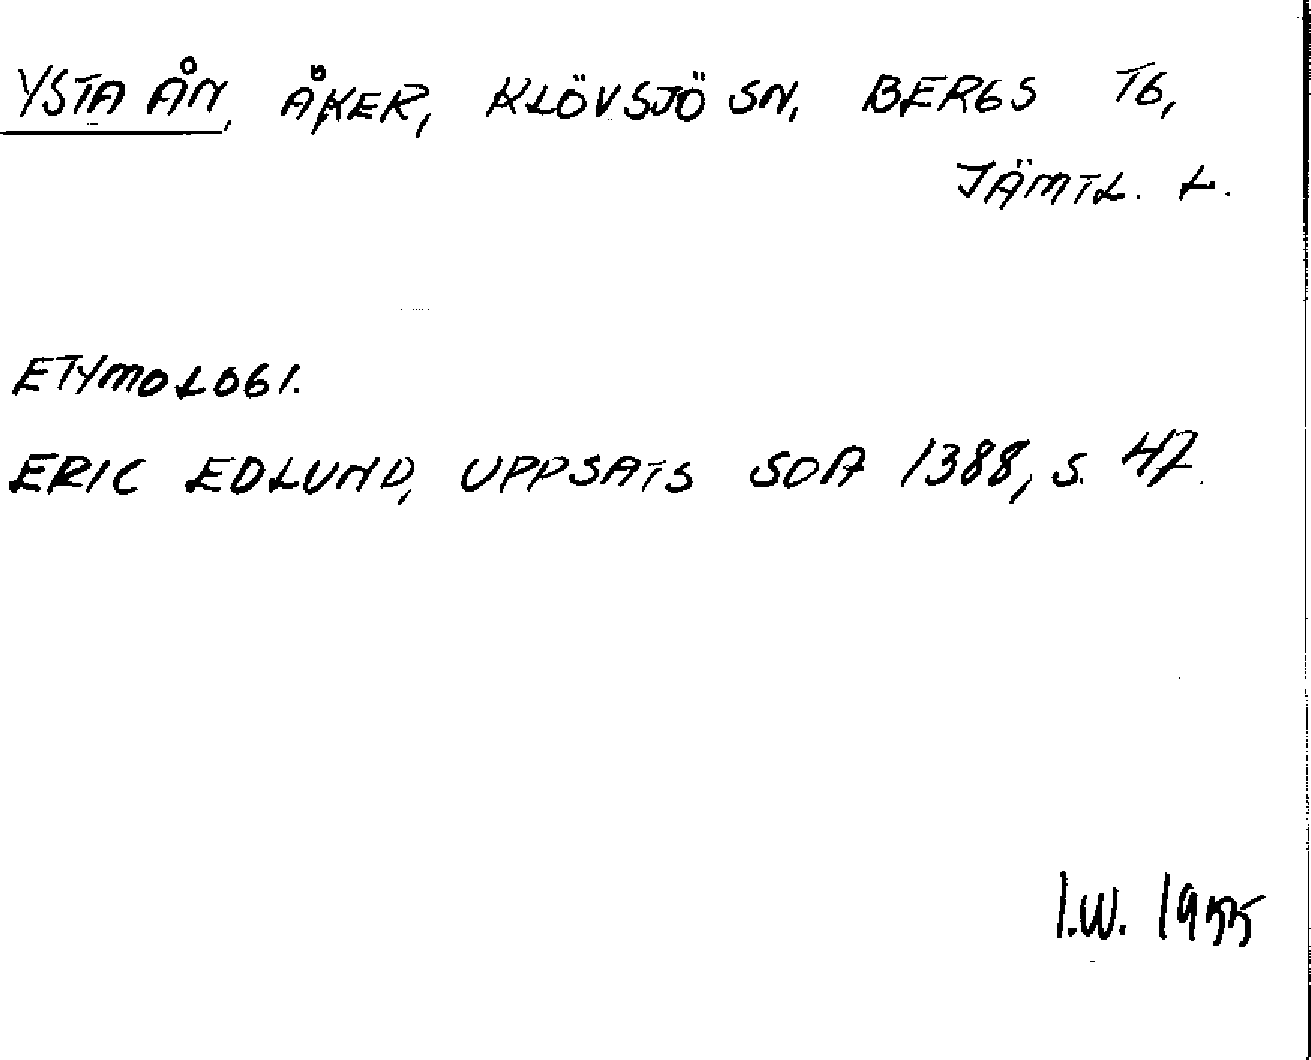 YSTA ÅN, ÅKER, KLÖVSJÖ SN, BERGS TG,
JÄMTL. L.
ETYMOLOGI.
ERIC EDLUND, UPPSATS SOA 1388, S. 42.
I.W. 1955